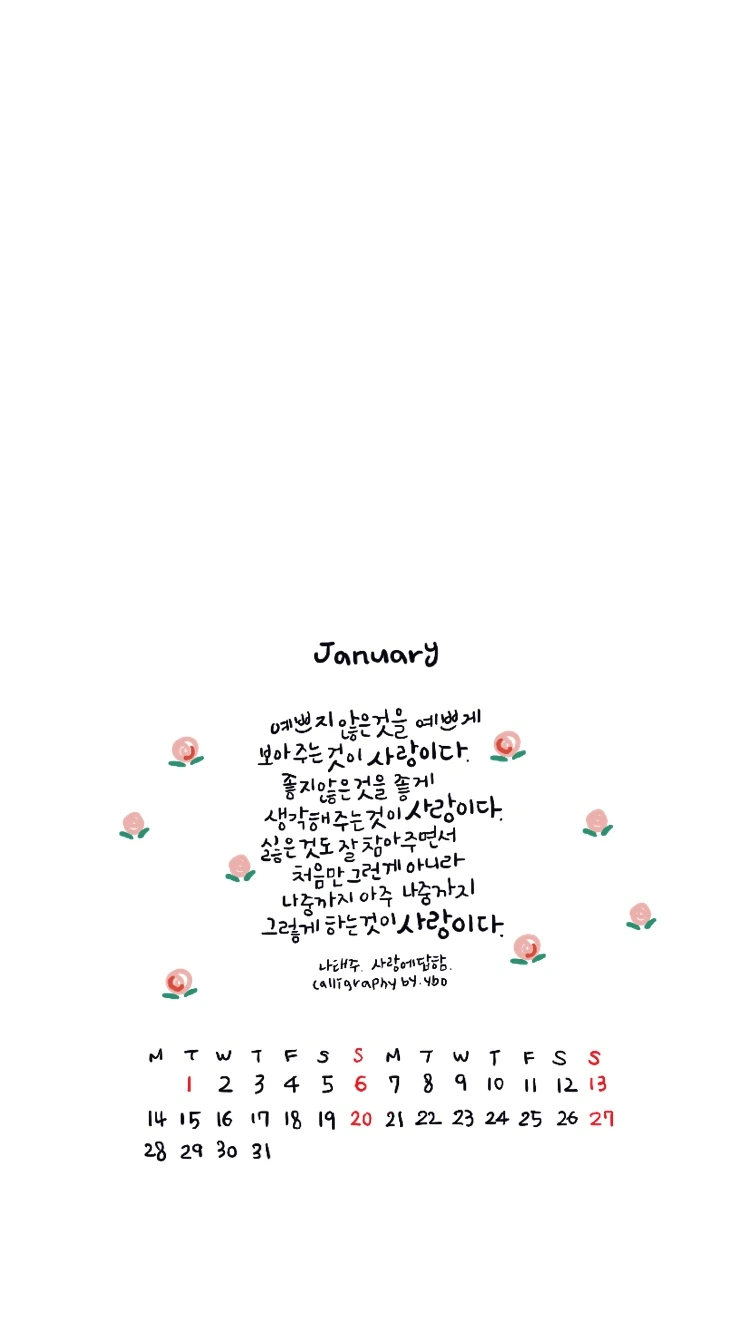 January
예쁘지 않은것을 예쁘게
보아주는것이 사랑이다.
좋지않은것을 좋게
생각해주는것이 사랑이다.
싫은것도 잘 참아주면서
처음만 그런게 아니라
나중까지 아주 나중까지
그렇게 하는것이 사랑이다.
나태주. 사랑에답함.
calligraphy by. ybo
M T W T F S S M T W T F S S
1 2 3 4 5 6 7 8 9 10 11 12 13
14 15 16 17 18 19 20 21 22 23 24 25 26 27
28 29 30 31